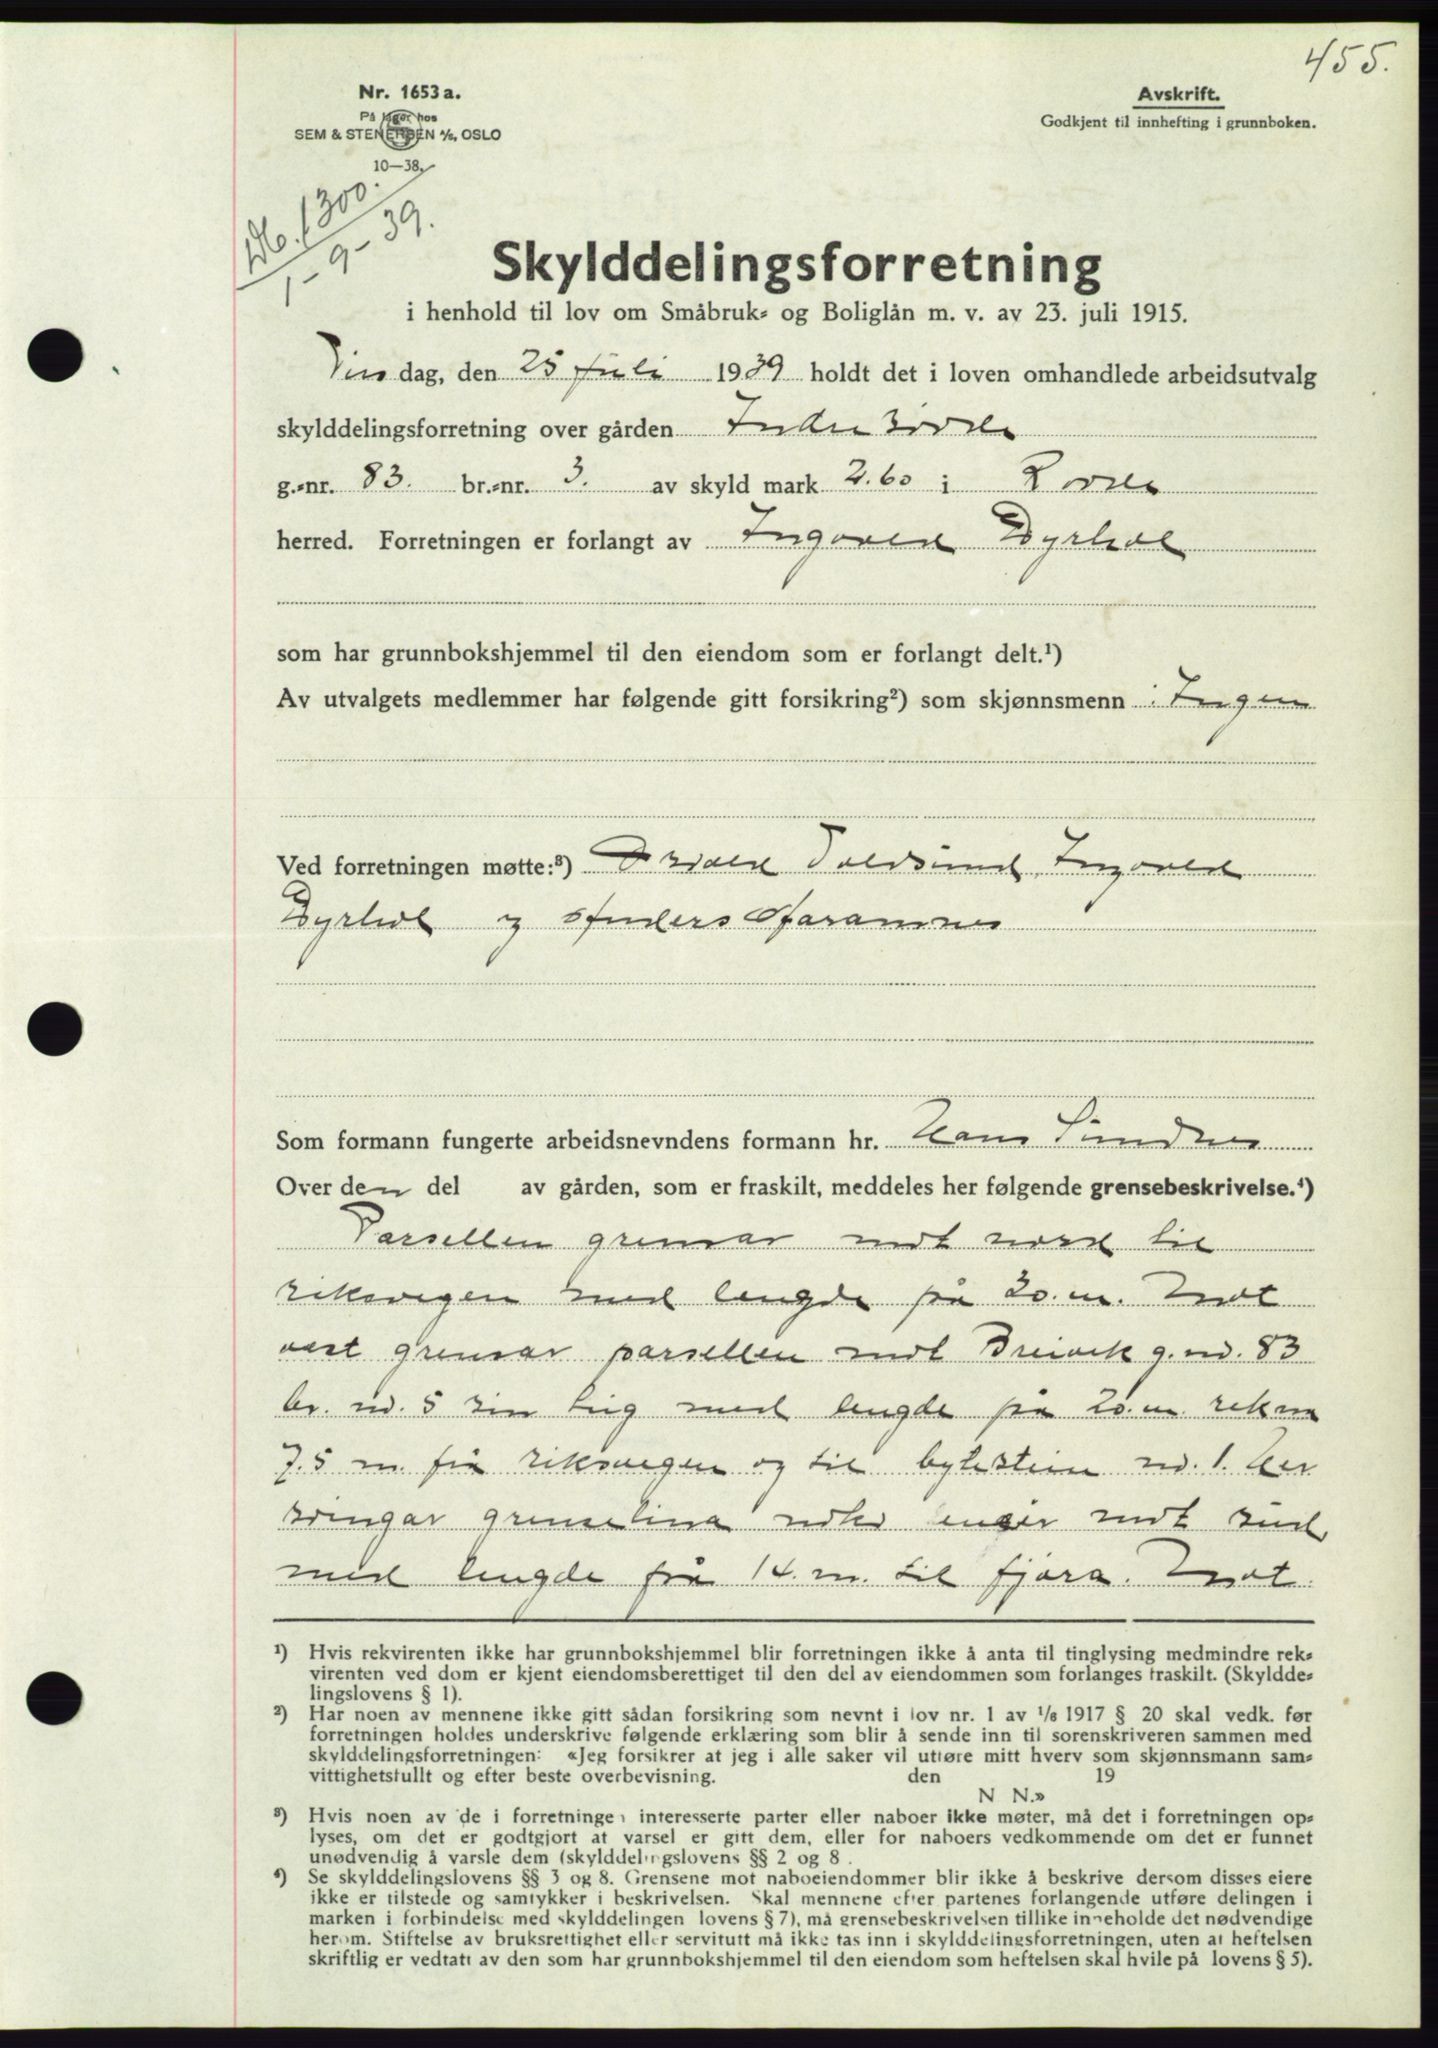 455.
Nr. 1653 a.
På lager hos
SEM & STENERSEN A/S, OSLO
10—38.
Avskrift.
Godkjent til innhefting i grunnboken.
1300.
1-9-39.
Skylddelingsforretning
i henhold til lov om Småbruk- og Boliglån m. v. av 23. juli 1915.
Tirsdag, den 25 juli 1939 holdt det i loven omhandlede arbeidsutvalg
skylddelingsforretning over gården Indre Rovde
g.-nr. 83. br.-nr. 3. av skyld mark 2.60 i Rovde
herred. Forretningen er forlangt av Ingvald Dyrhol
som har grunnbokshjemmel til den eiendom som er forlangt delt.¹)
Av utvalgets medlemmer har følgende gitt forsikring²) som skjønnsmenn : Ingen
Ved forretningen møtte:³) Ingvald
Dyrhol og Anders
Som formann fungerte arbeidsnevndens formann hr. Hans Sundnes
Over den del av gården, som er fraskilt, meddeles her følgende grensebeskrivelse.⁴)
Parsellen grensar mot nord til
riksvegen med lengde på 20.m. Mot
vest grensar parsellen mot Breivik g. nr. 83
br. nr. 5 med lengde på 20.m.
7.5 m. frå riksvegen og til bytestein nr. 1. Her
svingar grenselina mot sud
med lengde frå 14. m. til fjøra. Mot
¹) Hvis rekvirenten ikke har grunnbokshjemmel blir forretningen ikke å anta til tinglysing medmindre rek-
virenten ved dom er kjent eiendomsberettiget til den del av eiendommen som forlanges fraskilt. (Skyldde-
lingslovens § 1).
²) Har noen av mennene ikke gitt sådan forsikring som nevnt i lov nr. 1 av 1/6 1917 § 20 skal vedk. før
forretningen holdes underskrive følgende erklæring som blir å sende inn til sorenskriveren sammen med
skylddelingsforretningen: «Jeg forsikrer at jeg i alle saker vil utføre mitt hverv som skjønnsmann sam-
vittighetsfullt og efter beste overbevisning. den 19
N N.»
³) Hvis noen av de i forretningen interesserte parter eller naboer ikke møter, må det i forretningen op-
lyses, om det er godtgjort at varsel er gitt dem, eller for naboers vedkommende om det er funnet
unødvendig å varsle dem (skylddelingslovens §§ 2 og 8 .
⁴) Se skylddelingslovens §§ 3 og 8. Grensene mot naboeiendommer blir ikke å beskrive dersom disses eiere
ikke er tilstede og samtykker i beskrivelsen. Skal mennene efter partenes forlangende utføre delingen i
marken i forbindelse med skylddelingen lovens § 7), må grensebeskrivelsen tillike inneholde det nødvendige
herom. Stiftelse av bruksrettighet eller servitutt må ikke tas inn i skylddelingsforretningen, uten at heftelsen
skriftlig er vedtatt av den som har grunnbokshjemmel til den eiendom som heftelsen skal hvile på lovens § 5).